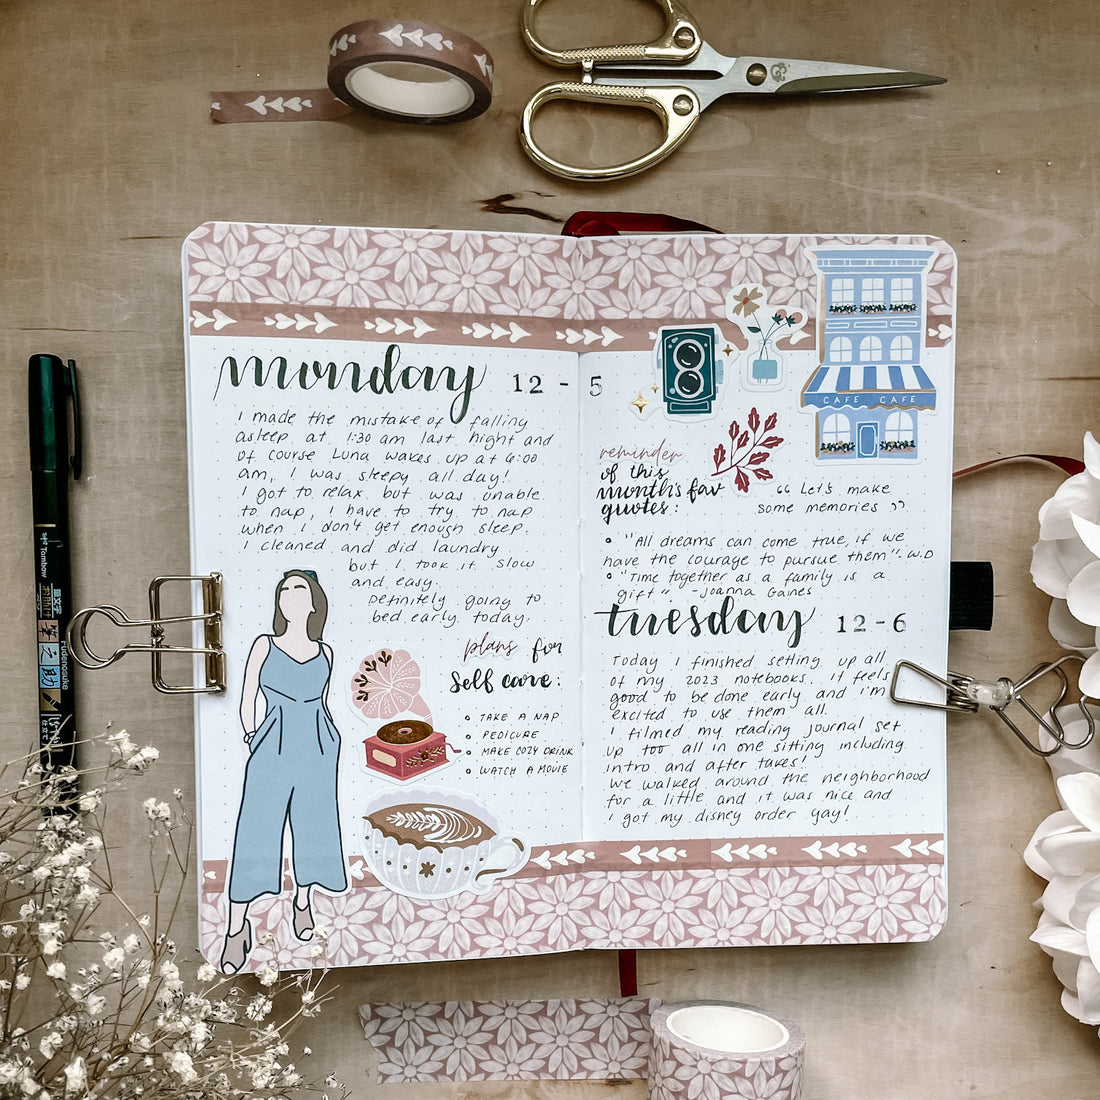 monday 12-5
I made the mistake of falling
asleep at 1:30 am last night and
of course Luna wakes up at 6:00
am, I was sleepy all day!
I got to relax but was unable
to nap, I have to try to nap
when I don't get enough sleep.
I cleaned and did laundry
but I took it slow
and easy.
Definitely going to
bed early today.
plans for
self care:
TAKE A NAP
PEDICURE
MAKE COZY DRINK
WATCH A MOVIE
CAFE CAFE
reminder
of this
month's fav
quotes:
"Let's make
some memories"
"All dreams can come true, if we
have the courage to pursue them". W.D
"Time together as a family is a
gift" -Joanna Gaines
tuesday 12-6
Today I finished setting up all
of my 2023 notebooks. it feels
good to be done early and I'm
excited to use them all.
I filmed my reading journal set
up too all in one sitting including
intro and after takes!
We walked around the neighborhood
for a little and it was nice and
I got my disney order yay!
Tombow
Fudenosuke